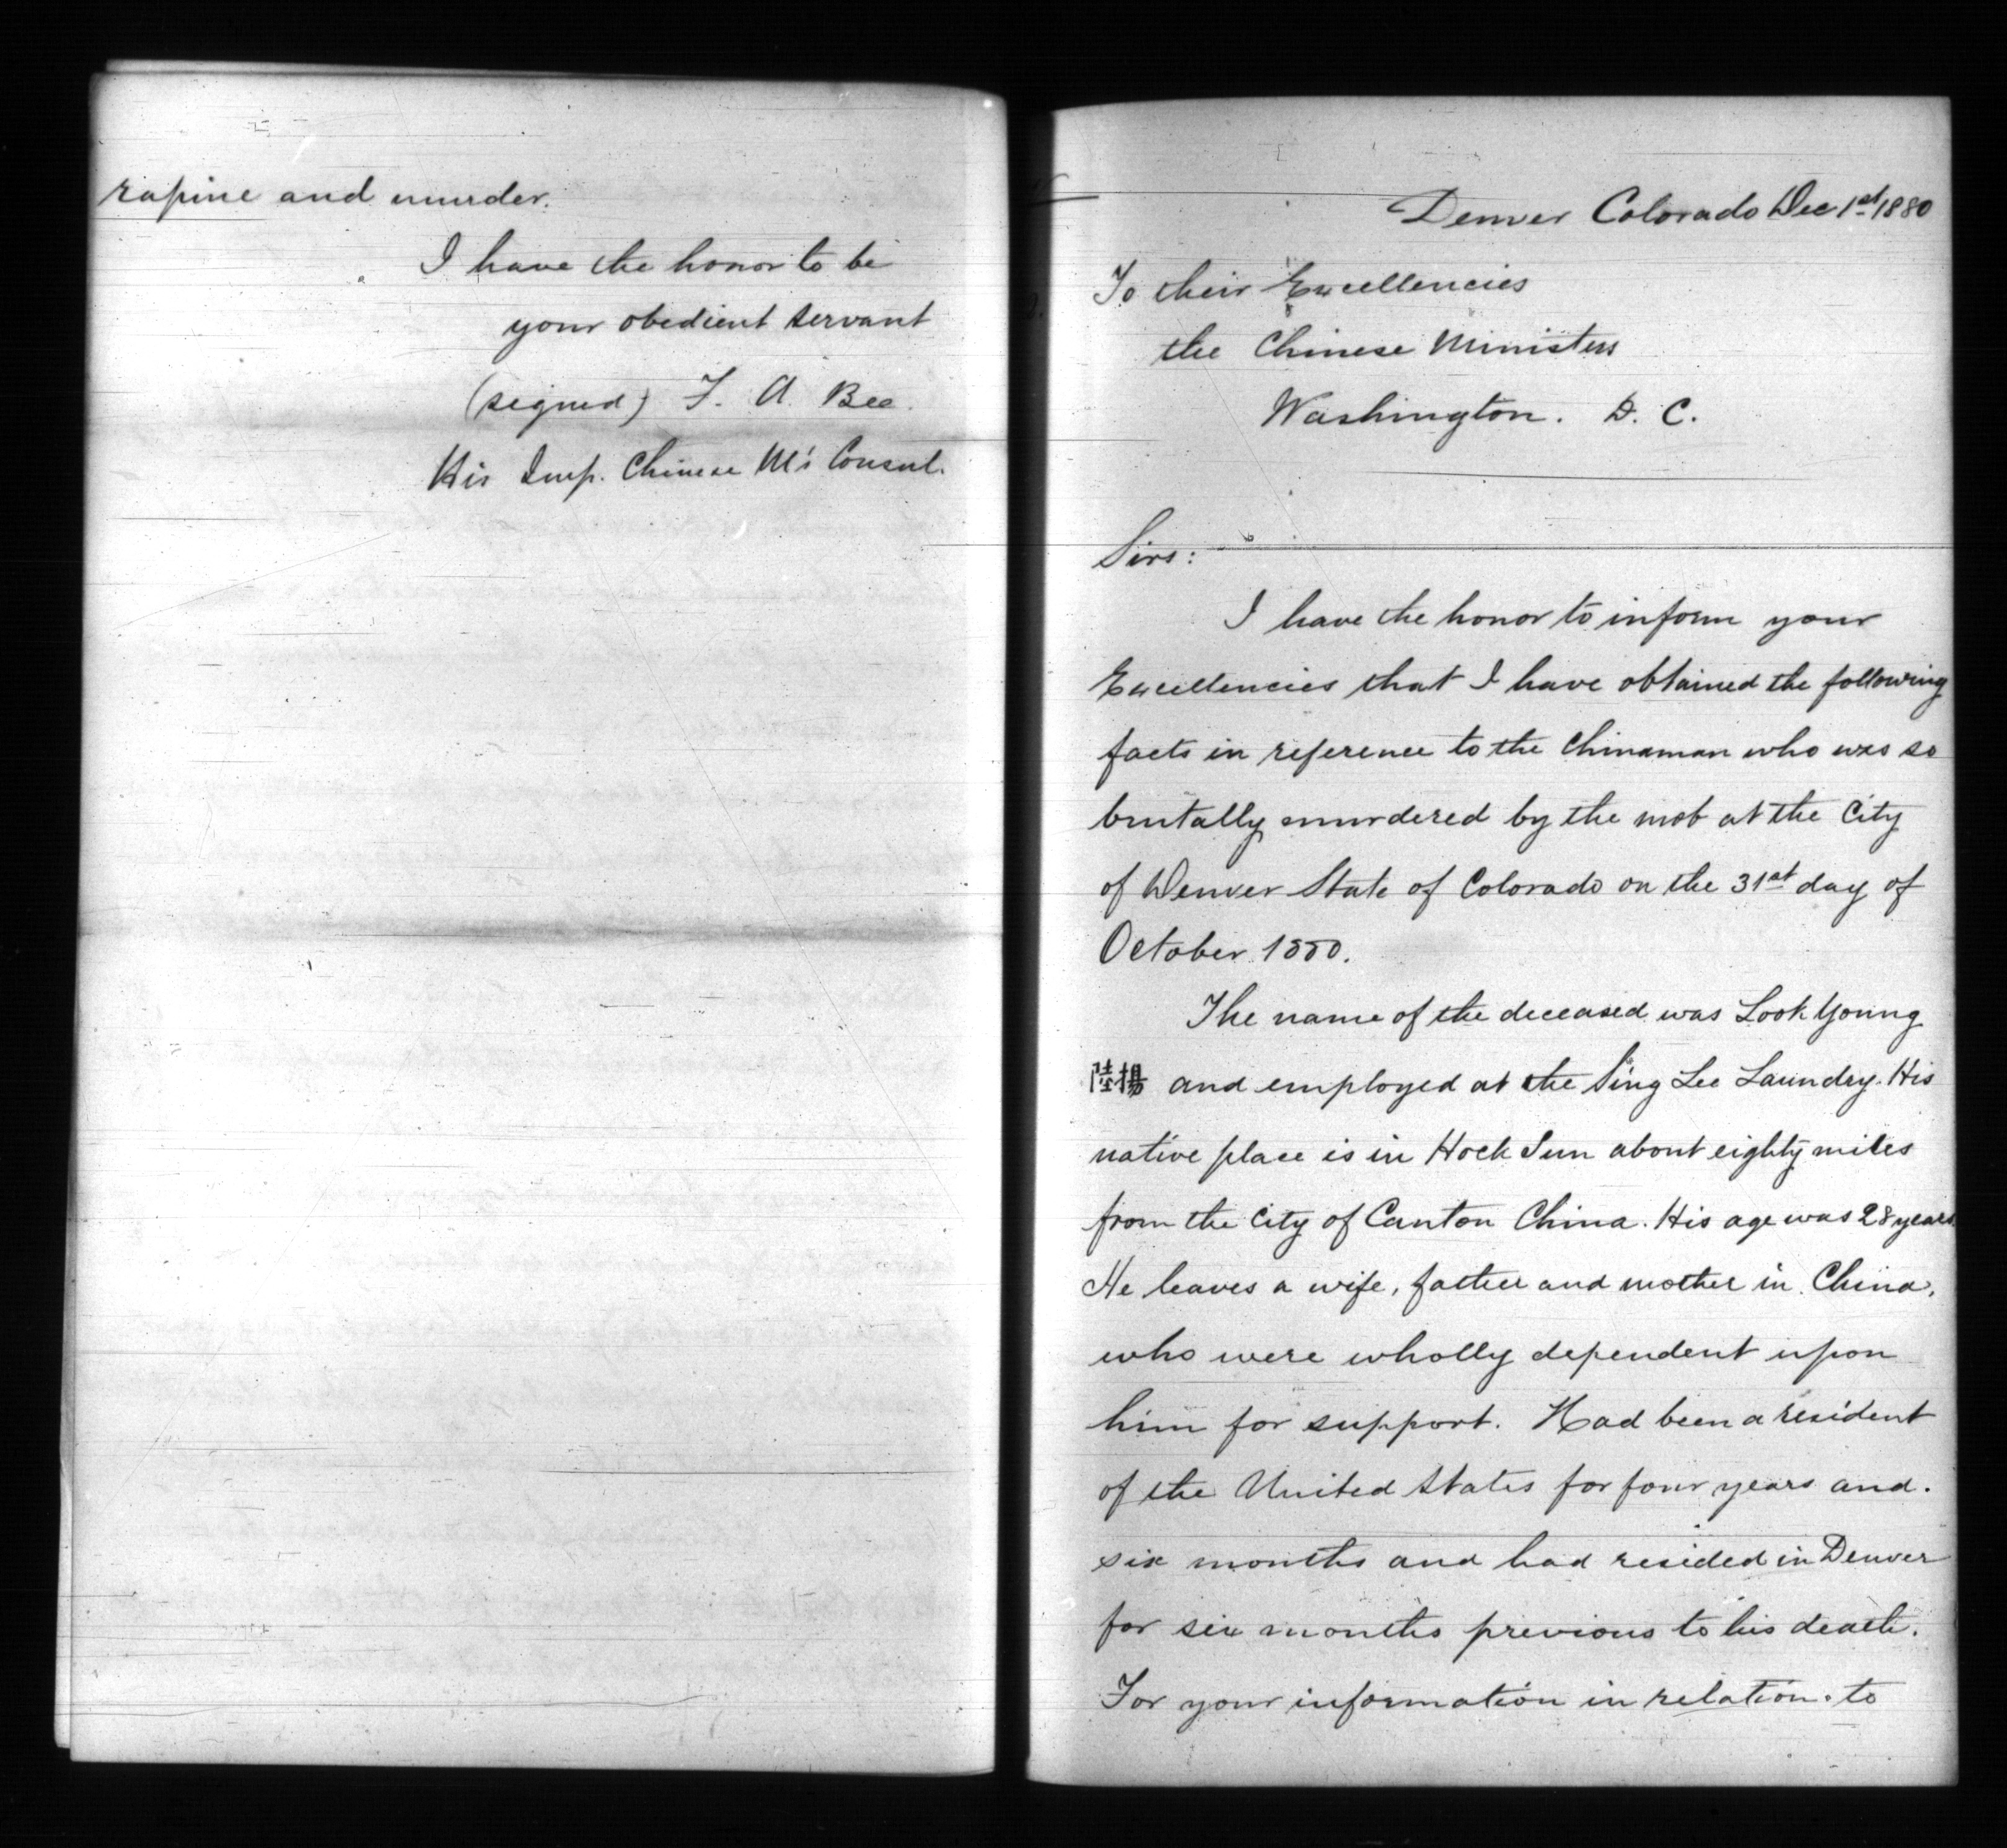 rapine and murder.
I have the honor to be
your obedient servant
(signed) F. A. Bee.
His Imp. Chinese M's Consul.
Denver Colorado Dec 1st 1880
To their Excellencies
the Chinese Ministers
Washington. D. C.
Sirs:
I have the honor to inform your
Excellencies that I have obtained the following
facts in reference to the Chinaman who was so
brutally murdered by the mob at the City
of Denver State of Colorado on the 31st day of
October 1880.
The name of the deceased was Look Young
陸揚 and employed at the Sing Lee Laundry. His
native place is in Hock Sun about eighty miles
from the City of Canton China. His age was 28 years.
He leaves a wife, father and mother in China,
who were wholly dependent upon
him for support. Had been a resident
of the United States for four years and.
six months and had resided in Denver
for six months previous to his death.
For your information in relation to